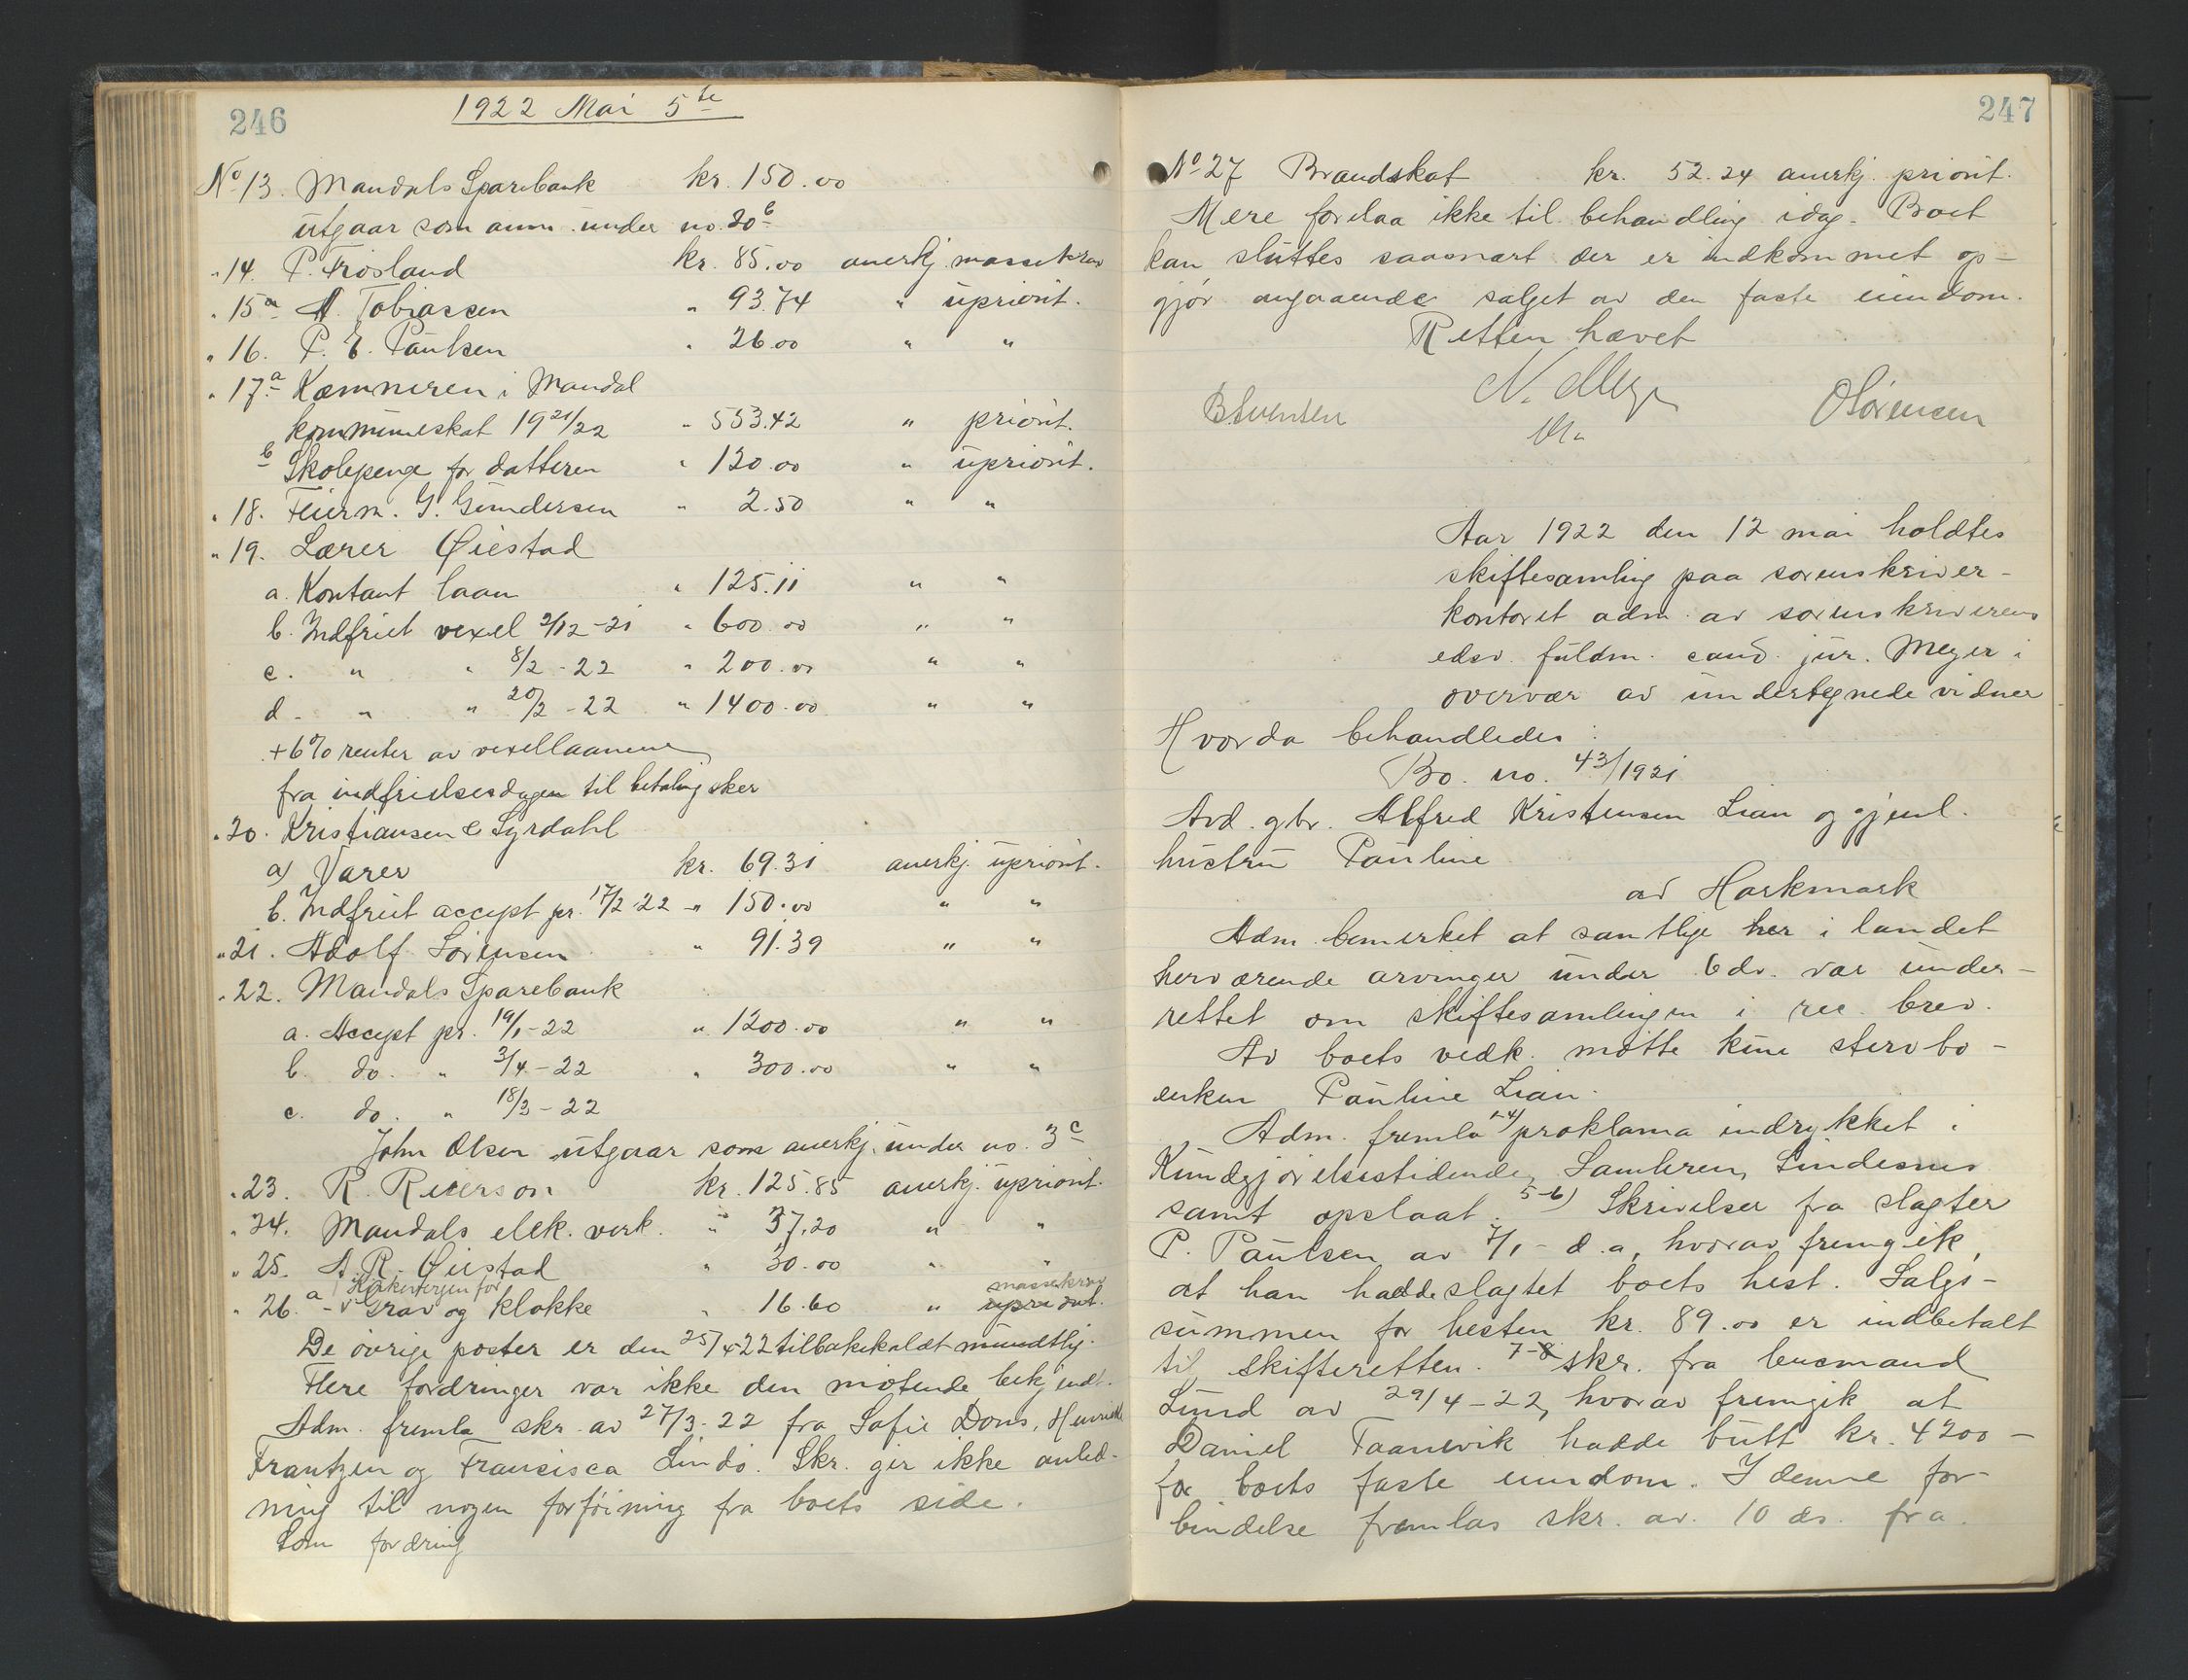 246
1922 Mai 5te
No 13. Mandals Sparebank kr. 150.00
utgaar som anm. under no. 20b
" 14. P. Frøsland kr. 85.00 anerkj. massekrav
" 15a A. Tobiassen " 93.74 " upriorit.
" 16. P. E. Paulsen " 26.00 " "
" 17a Kæmneren i Mandal
kommuneskat 1921/22 " 553.42 " priorit.
b Skolepenge for datteren " 120.00 " upriorit.
" 18. Feierm. G. Gundersen " 2.50 " "
" 19. Lærer Øiestad
a. Kontant laan " 125.11 " "
b. Indfriet vexel 2/12-21 " 600.00 " "
c. " " 8/2-22 " 200.00 " "
d. " " 20/2-22 " 1400.00 " "
+6% renter av vexellaanene
fra indfrielsesdagen til betaling sker
" 20. Kristiansen & Syrdahl
a) Varer kr. 69.31 anerkj. upriorit.
b. Indfriet accept pr. 17/2-22 " 150.00 " "
" 21. Adolf Sørensen " 91.39 " "
" 22. Mandals Sparebank
a. Accept pr. 19/1-22 " 1200.00 " "
b. do. " 3/4-22 " 300.00 " "
c. do. " 18/3-22
John Olsen utgaar som anerkj. under no. 3c
" 23. R. Reierson kr. 125.85 anerkj. upriorit.
" 24. Mandals elek. verk. " 37.20 " "
" 25. A. R. Øiestad " 30.00 " "
" 26. a Kirkevergen for grav og klokke " 16.60 " massekrav upriorit.
De øvrige poster er den 25/4-22 tilbakekaldt mundtlig.
Flere fordringer var ikke den møtende bekjendt.
Adm. fremla skr. av 27/3-22 fra Sofie Dons, Henriette
Frantzen og Francisca Lindø. Skr. gir ikke anled-
ning til nogen forføining fra boets side.
Som fordring
247
No 27 Brandskat kr. 52.24 anerkj. priorit.
Mere forelaa ikke til behandling idag. Boet
kan sluttes saasnart der er indkommet op-
gjør angaaende salget av den faste eiendom.
Retten hævet
N. Meyer
B. Svensen
OSørensen
Aar 1922 den 12 mai holdtes
skiftesamling paa sorenskriver-
kontoret adm. av sorenskriverens
edsv. fuldm. cand. jur. Meyer i
overvær av undertegnede vidner
Hvorda behandledes:
Bo. no. 43/1921
Avd. gbr. Alfred Kristensen Lian og gjenl.
hustru Pauline
av Harkmark
Adm. bemerket at samtlige her i landet
herværende arvinger under 6 ds. var under-
rettet om skiftesamlingen i rec. brev.
Av boets vedk. møtte kun stervbo-
enken Pauline Lian.
Adm. fremla 1-4) proklama indrykket i
Kundgjørelsestidende, Samleren, Lindesnes
samt opslaat. 5-6) Skrivelser fra slagter
P. Paulsen av 7/1- d.a, hvorav fremgik,
at han hadde slagtet boets hest. Salgs-
summen for hesten kr. 89.00 er indbetalt
til skifteretten. 7-8 skr. fra lensmand
Lund av 29/4-22, hvorav fremgik at
Daniel Taanevik hadde butt kr. 4200 -
for boets faste eiendom. I denne for-
bindelse fremlas skr. av. 10 ds. fra